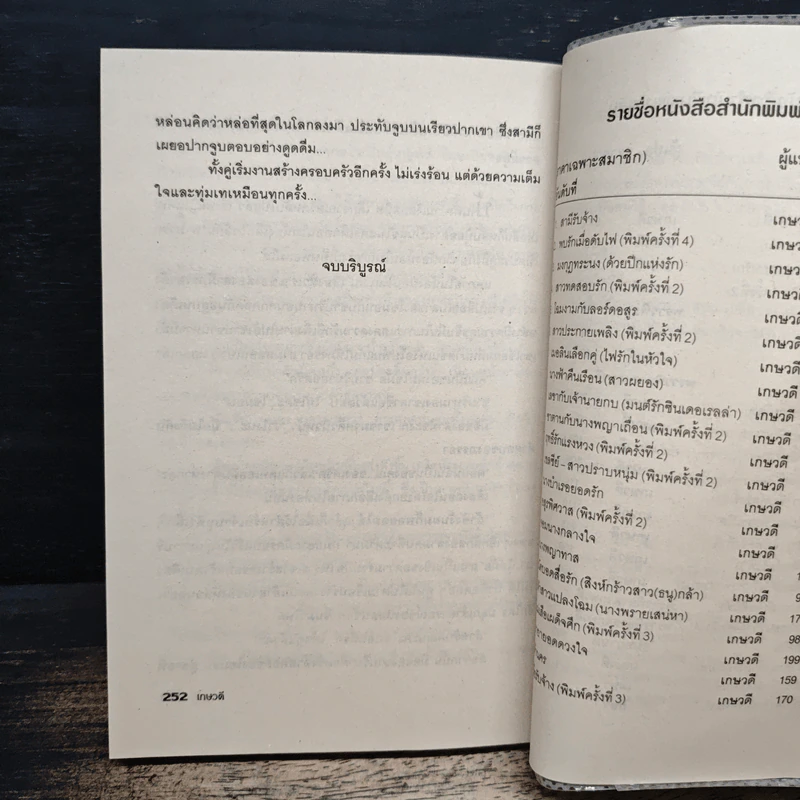 หล่อนคิดว่าหล่อที่สุดในโลกลงมา ประทับจูบบนเรียวปากเขา ซึ่งสามีก็
เผยอปากจูบตอบอย่างดูดดื่ม...
ทั้งคู่เริ่มงานสร้างครอบครัวอีกครั้ง ไม่เร่งร้อน แต่ด้วยความเต็ม
ใจและทุ่มเทเหมือนทุกครั้ง...
จบบริบูรณ์
252 เกษวดี
รายชื่อหนังสือสำนักพิมพ์
(ราคาเฉพาะสมาชิก)
สามีรับจ้าง เกษว
พบรักเมื่อดับไฟ (พิมพ์ครั้งที่ 4) เกษว
มงกุฎทระนง (ด้วยปีกแห่งรัก) เกษวดี
สาวทดสอบรัก (พิมพ์ครั้งที่ 2) เกษวดี
โฉมงามกับลอร์ดอสูร เกษวดี
สาวประกายเพลิง (พิมพ์ครั้งที่ 2) เกษวดี
เมอลินเลือกคู่ (ไฟรักในหัวใจ) เกษวดี
นางฟ้าคืนเรือน (สาวผยอง) เกษวดี
กับเจ้านายกบ (มนต์รักซินเดอเรลล่า) เกษวดี
กับนางพญาเถื่อน (พิมพ์ครั้งที่ 2) เกษวดี
รักแรงหวง (พิมพ์ครั้งที่ 2) เกษวดี
- สาวปราบหนุ่ม (พิมพ์ครั้งที่ 2) เกษวดี
บำเรอยอดรัก เกษวดี
พิศวาส (พิมพ์ครั้งที่ 2) เกษวดี
นางกลางใจ เกษวดี
พญาทาส เกษวดี
บอดสื่อรัก (สิงห์กร้าวสาว(ธนู)กล้า) เกษวดี
สาวแปลงโฉม (นางพรายเสน่หา) เกษวดี
เสือเผด็จศึก (พิมพ์ครั้งที่ 3) เกษวดี 98
ยอดดวงใจ เกษวดี 199
เกษวดี 159
รับจ้าง (พิมพ์ครั้งที่ 3) เกษวดี 170